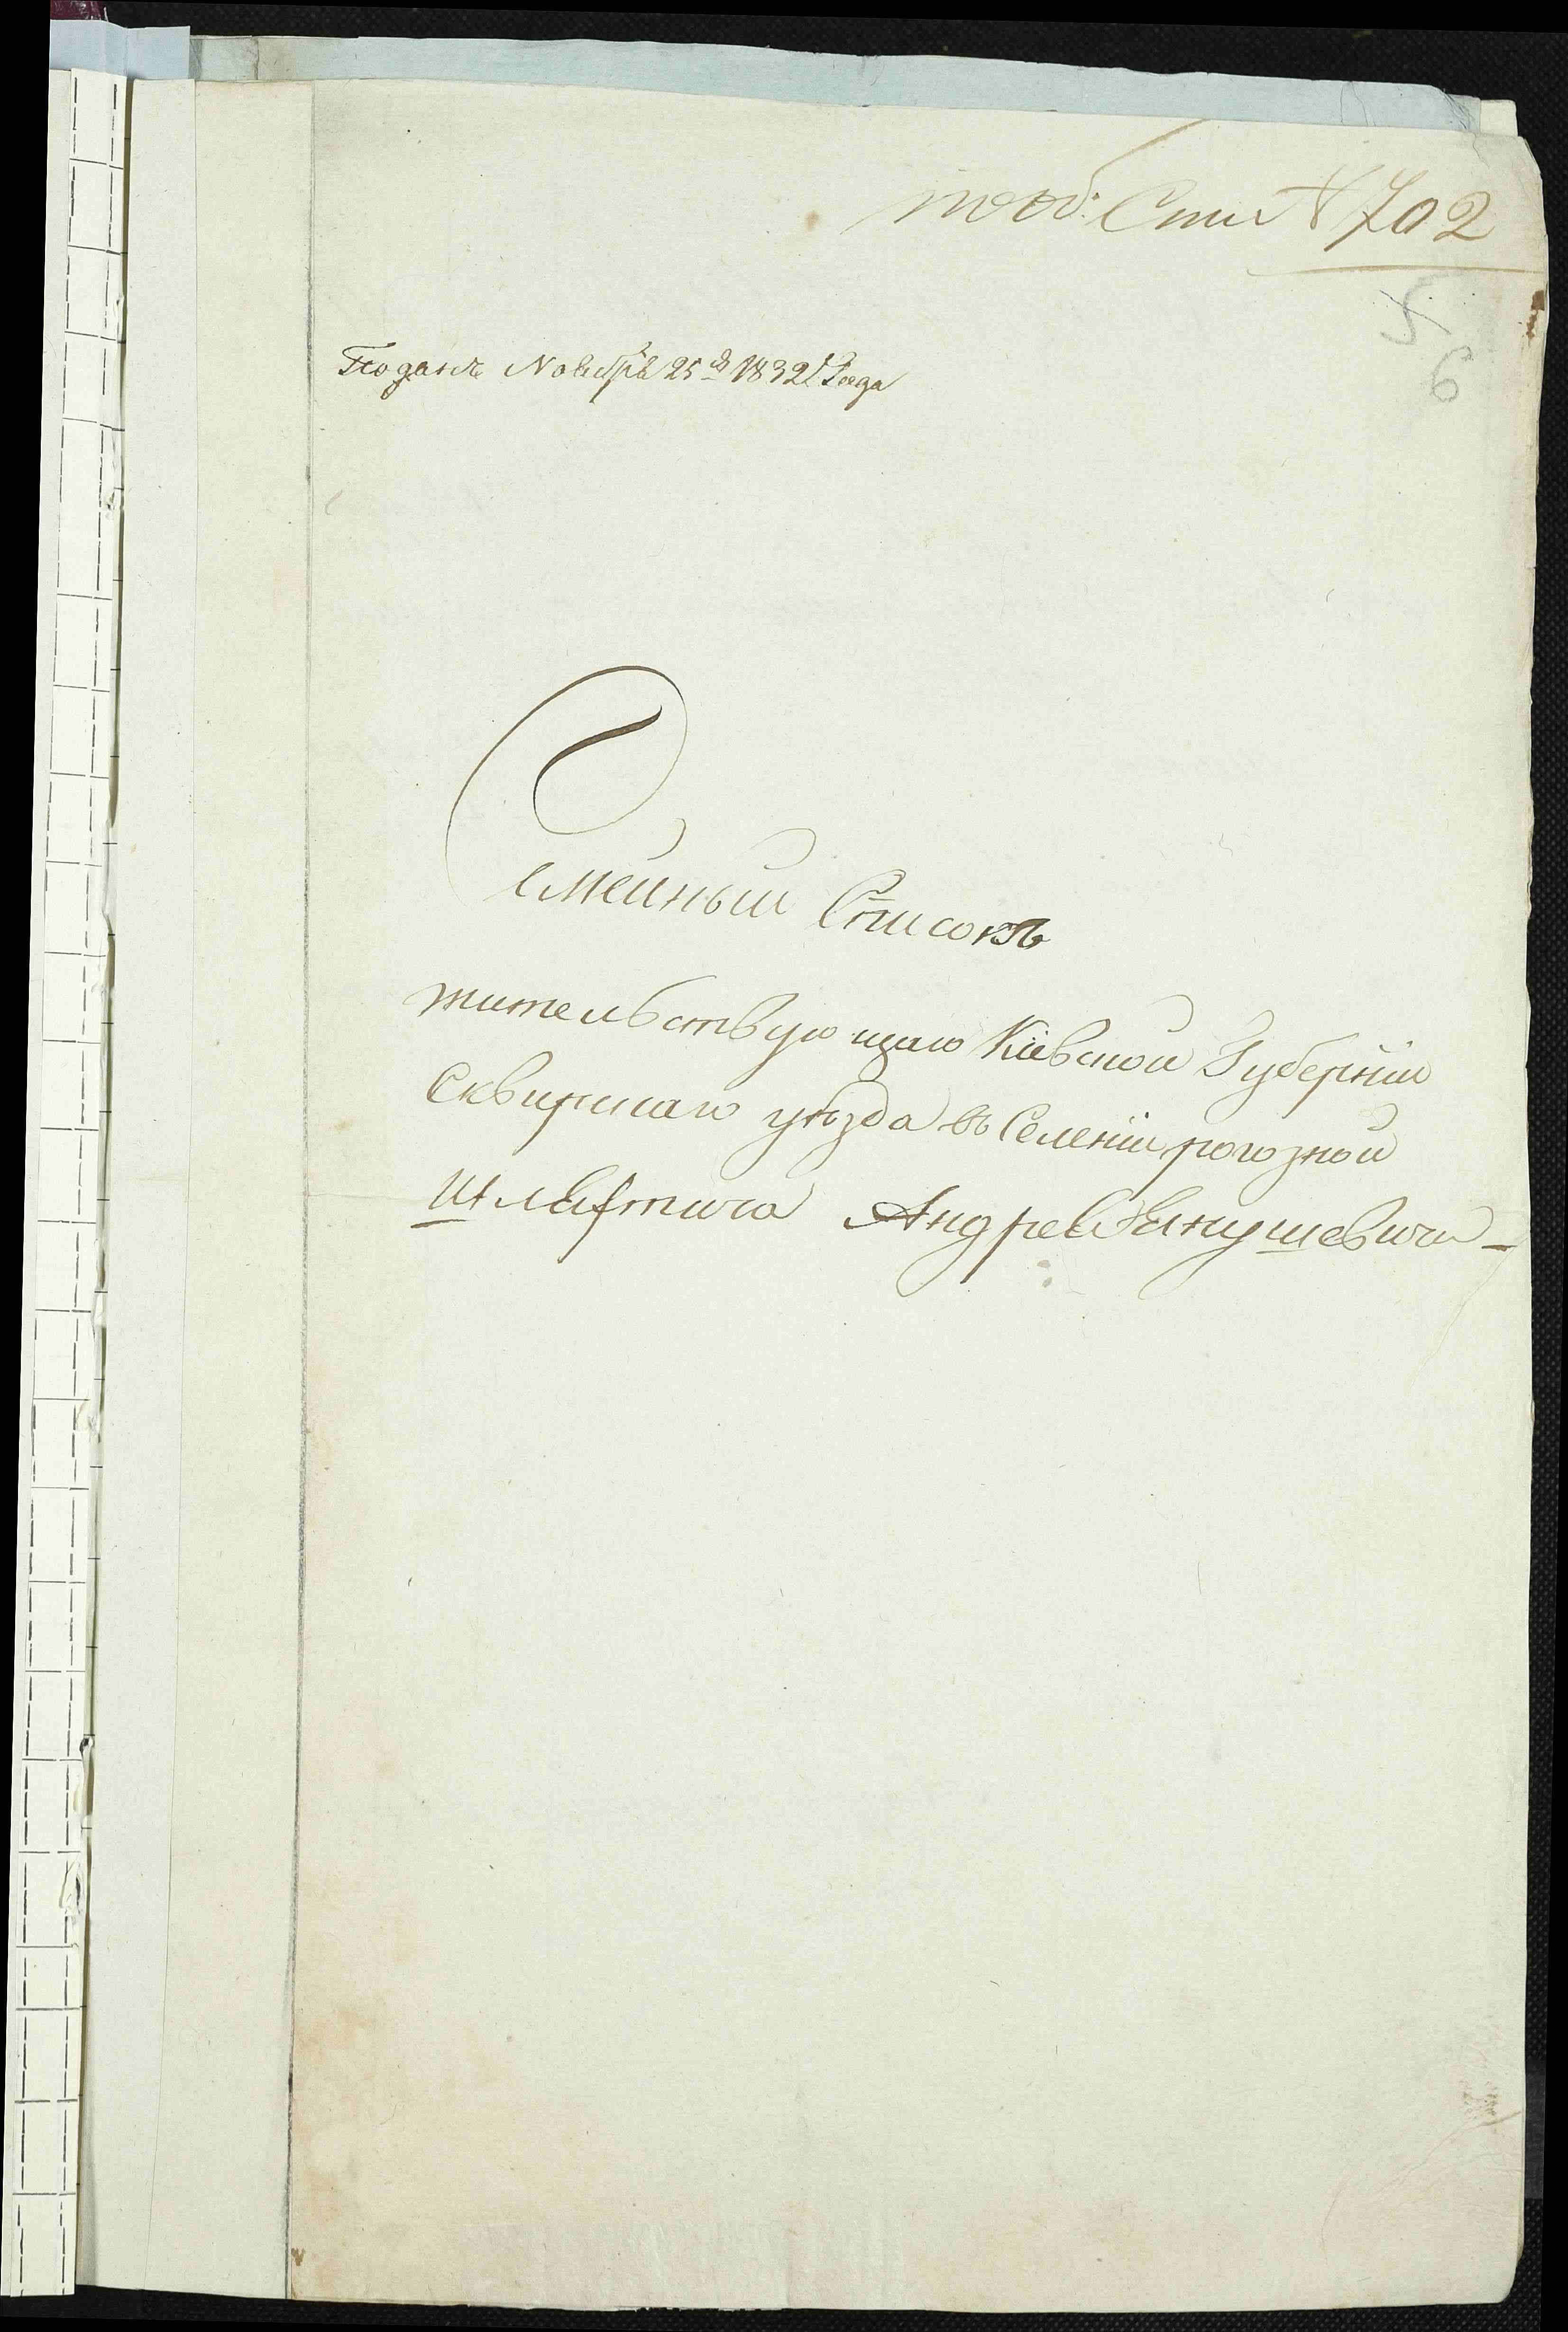 702
5
6
Поданъ Ноября 25 д 1832 Года
Семейный Списокъ
жительствующаго Кіевской Губерніи
Сквирскаго уѣзда въ Селеніи рогозной
шляхтича Андрея Янушевича